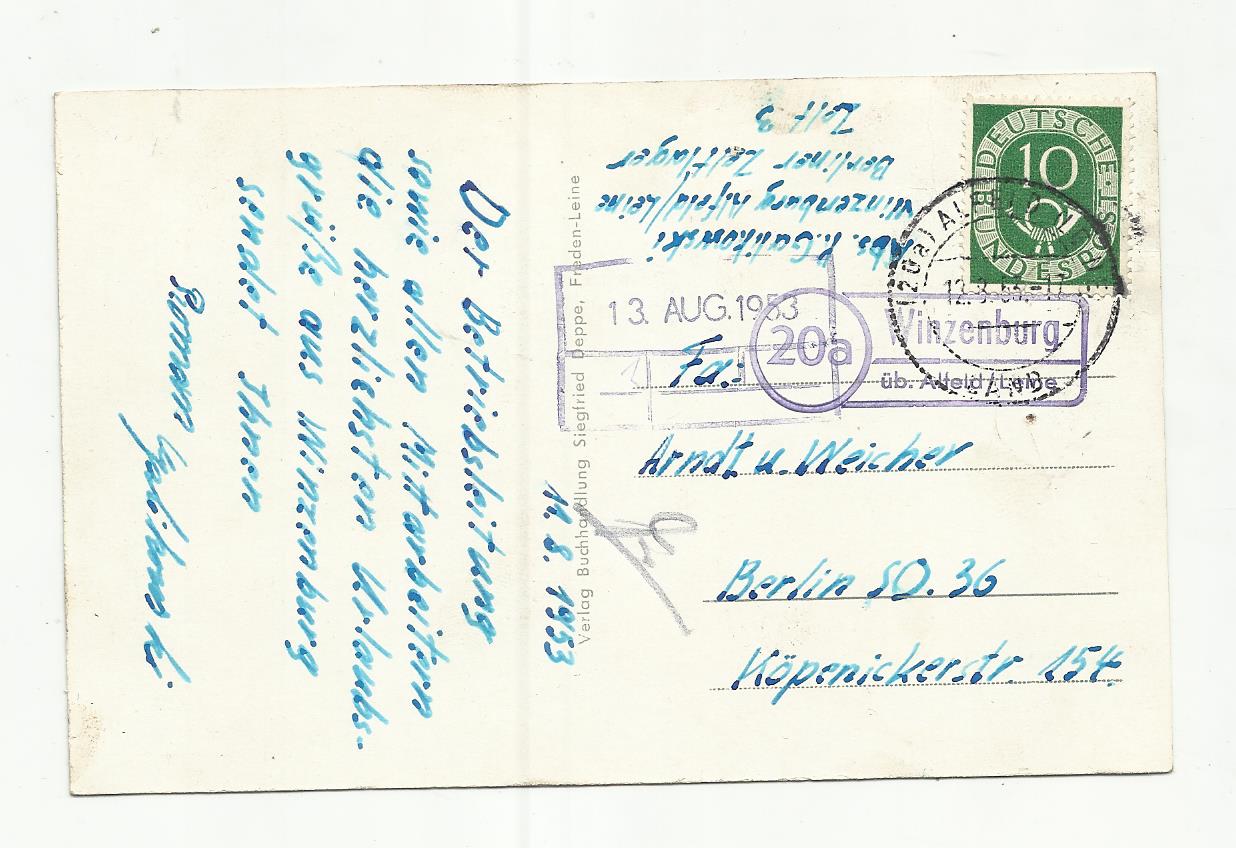 11. 8. 1953
Der Betriebsleitung
sowie allen Mitarbeitern
die herzlichsten Urlaubs-
grüße aus Winzenburg
sendet Ihnen
Abs. R. Galikowski
Winzenburg Alfeld/Leine
Berliner Zeltlager
Zelt 3
DEUTSCHE BUNDESPOST
10
(20a) ALFELD
13. AUG. 1953
20a
Winzenburg
üb. Alfeld/Leine
Fa.:
Arndt u. Weicher
Berlin SO. 36
Köpenickerstr. 154
Verlag Buchhandlung Siegfried Deppe, Freden-Leine